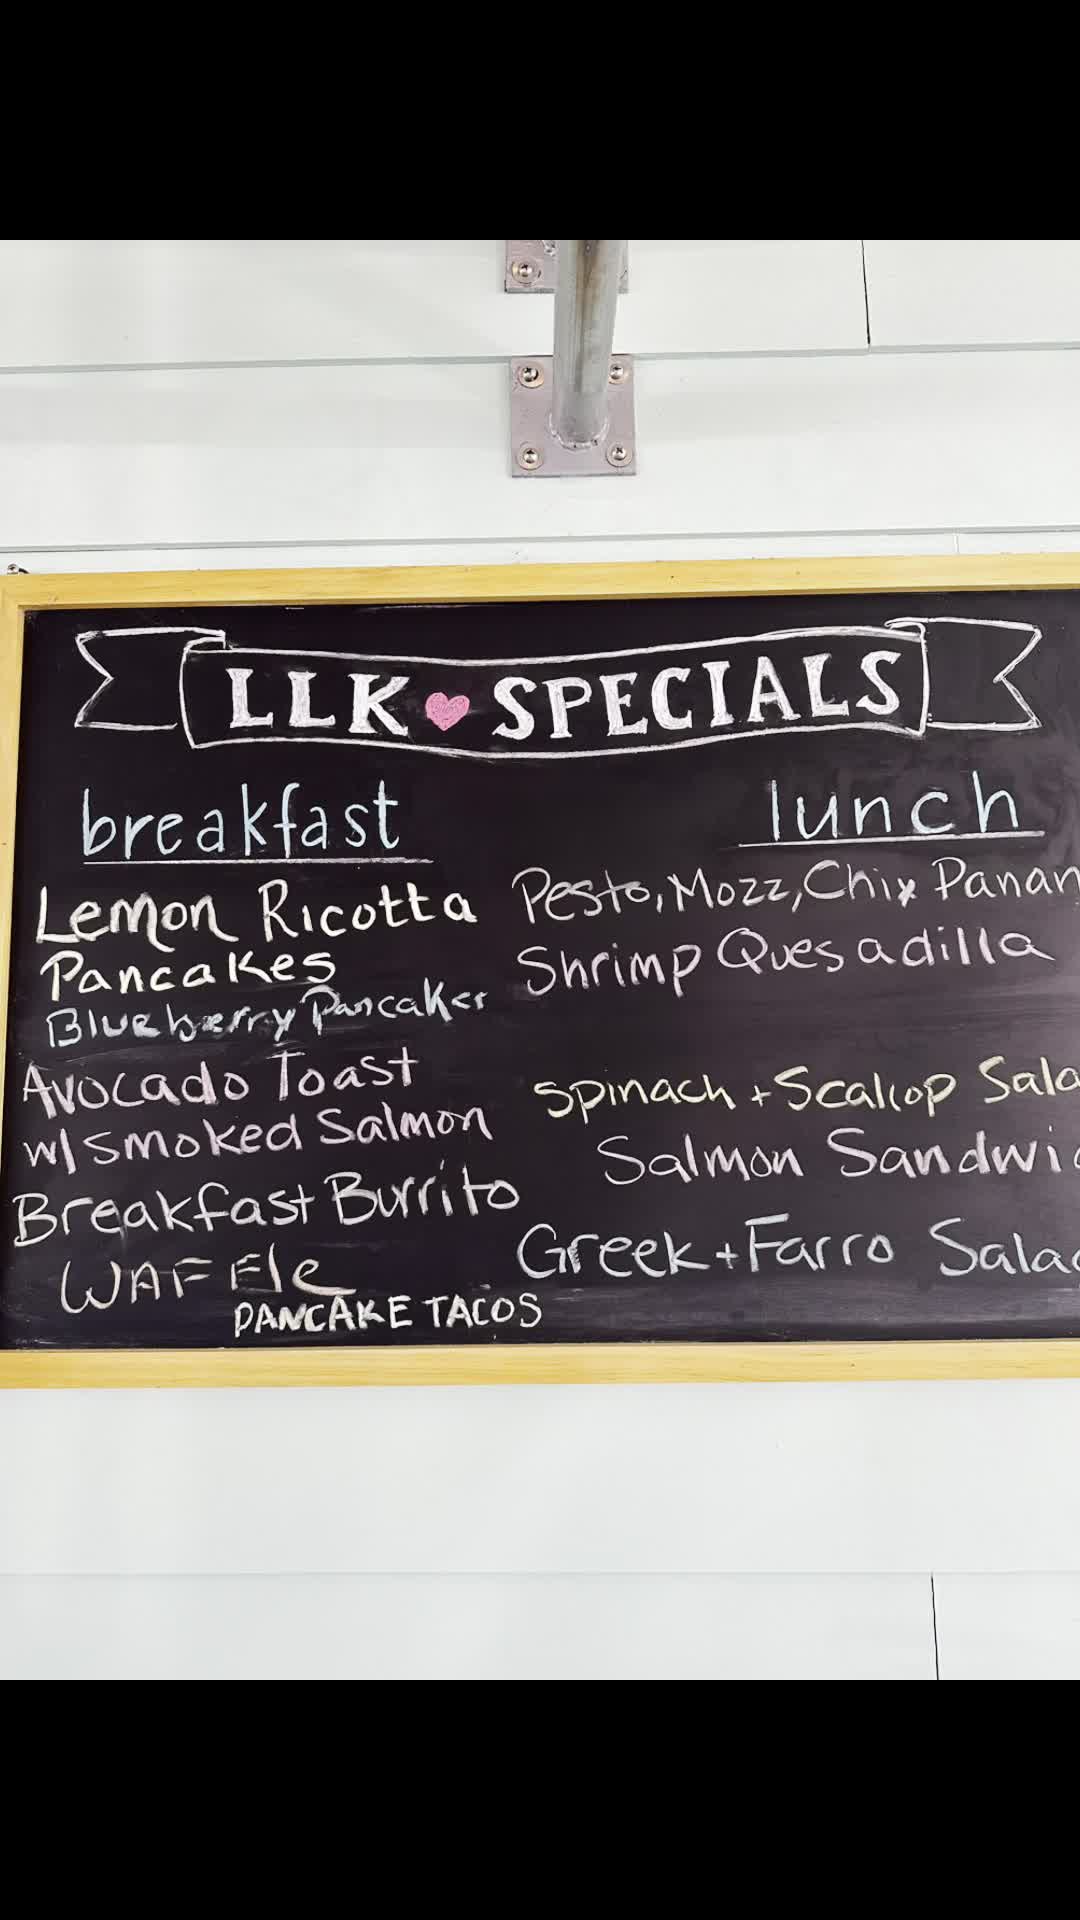 LLK SPECIALS
breakfast
Lemon Ricotta
Pancakes
Blueberry Pancakes
Avocado Toast
w/ Smoked Salmon
Breakfast Burrito
WAFFle
PANCAKE TACOS
lunch
Pesto, Mozz, Chix Panan
Shrimp Quesadilla
Spinach + Scallop Sala
Salmon Sandwi
Greek + Farro Sala